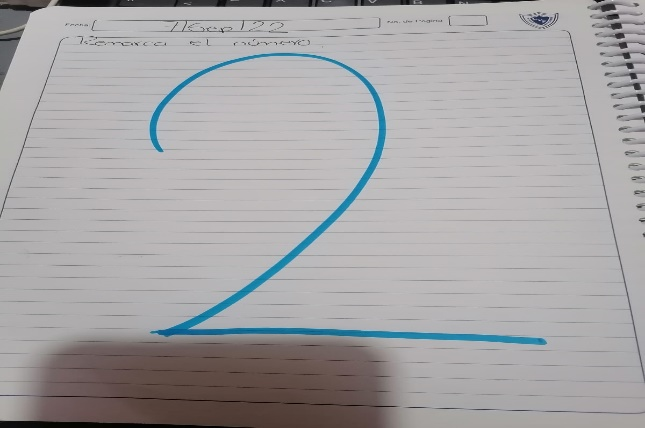 Fecha 7/Sep/22 No. de Página
Remarca el número
2